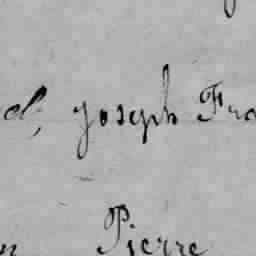 Joseph Fra
Pierre